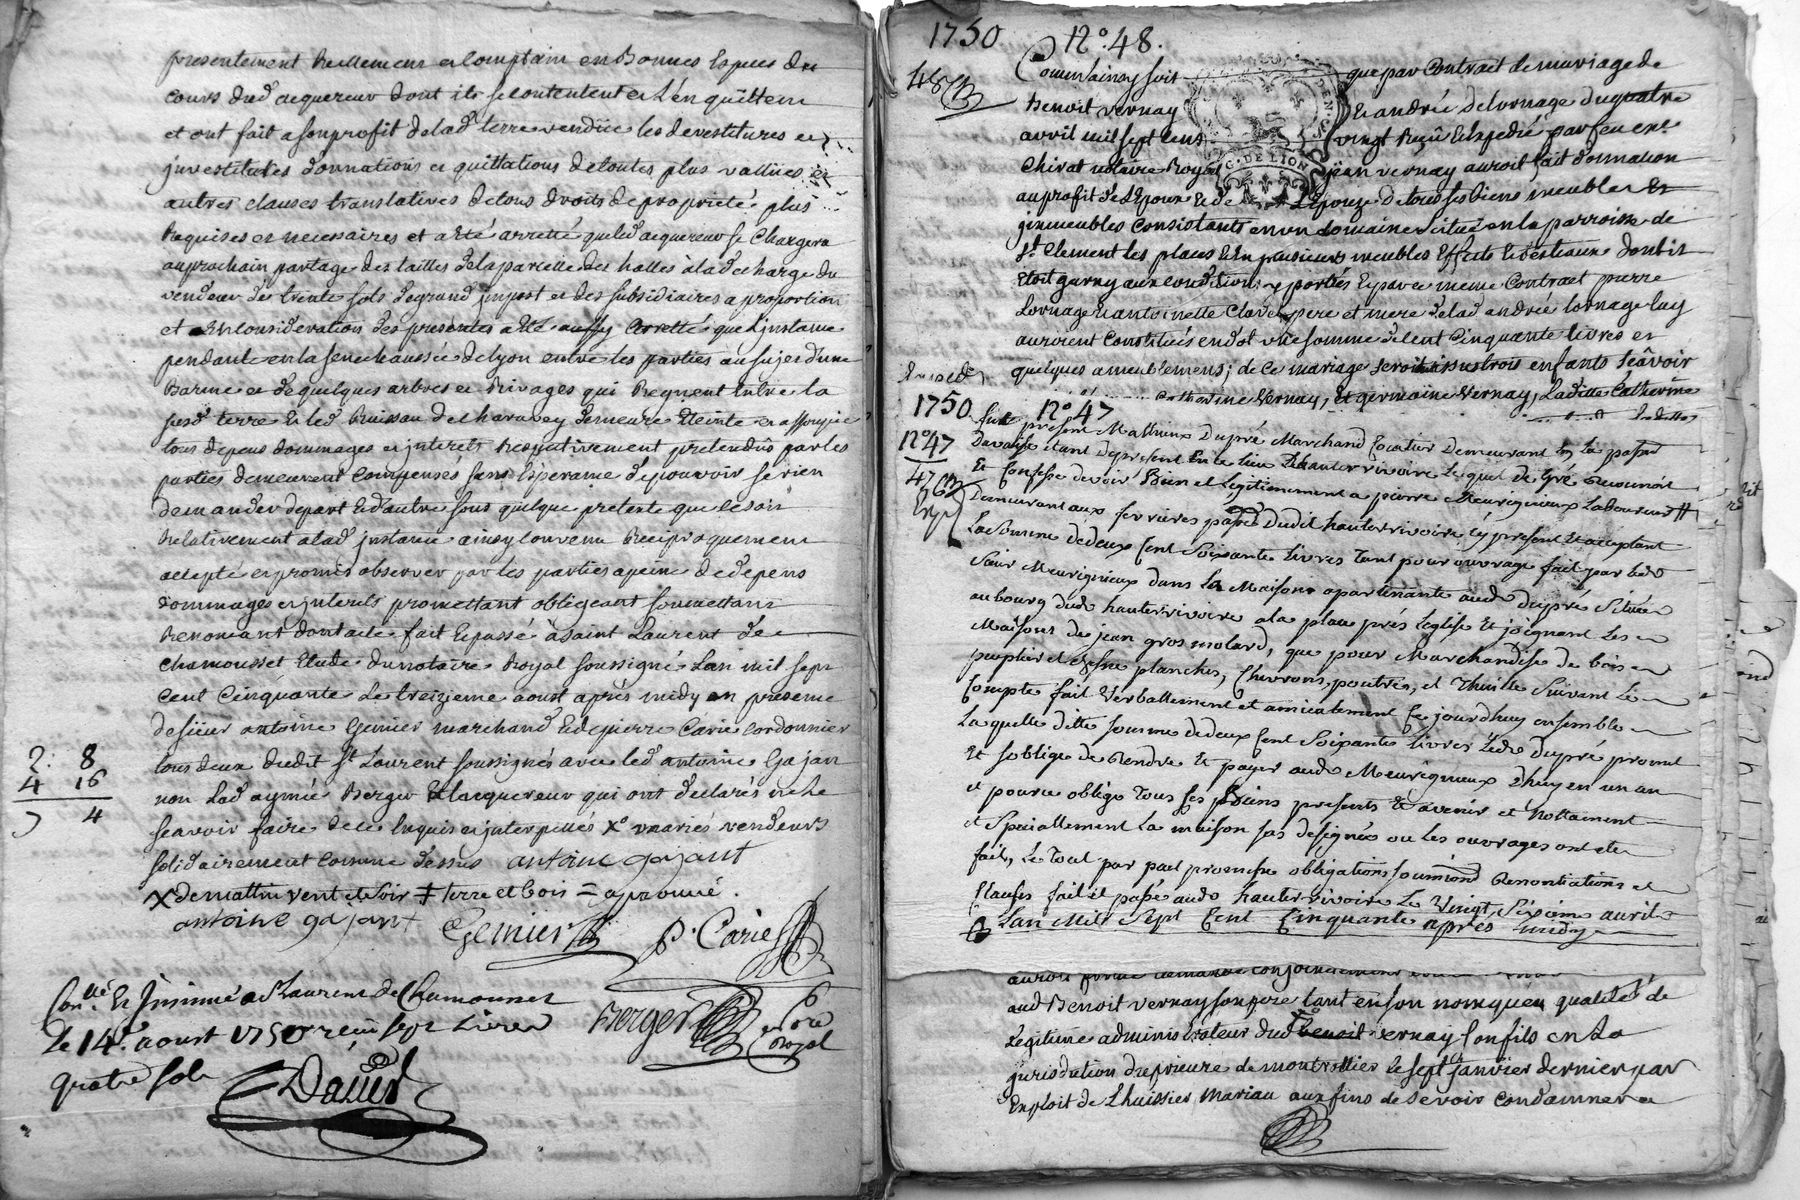 presentement Reellement et Comptain en Bonnes Especes du
cours dud acquereur dont ils se contentent et L'en quittent
et ont fait a son profit de lad terre vendüe les devestitures et
jnvestitures donnations et quittations de toutes plus vallües et
autres clauses translatives de tous droits de proprieté plus
Requises et necessaires et a Eté arretté que led acquereur se Chargera
au prochain partage des tailles de la parcelle des halles à la decharge du
vendeur de trente sols de grand jmpost et des subsidiaires a proportion
et En Consideration des presentes a Eté aussy arretté que L'jnstance
pendante en la senechaussée de Lyon entre les parties au sujet d'une
Barme et de quelques arbres et Rivages qui Regnent Entre la
susd terre et led Ruisseau de demeure Eteinte et assoupie
tous depens dommages et jnterets Respectivement pretendus par les
parties demeurent Compenses sans Esperance de pouvoir se rien
demander depart et d'autre sous quelque pretexte que ce soit
Relativement a lad jnstance ainsy Convenu Reciproquement
accepté et promis observer par les parties a peine de depens
dommages et jnterets promettant obligeant soumettant
Renonçant dont acte fait et passé à saint Laurent de
Chamousset Etude du notaire Royal soussigné L'an mil sept
cent Cinquante Le treizieme aoust aprés midy en presence
de sieur antoine Genier marchand et de pierre Carie Cordonnier
tous deux dudit St Laurent soussignés avec led antoine Gajan
non Lad aymée Berger et L'acquereur qui ont declarés ne le
sçavoir faire de ce Enquis et jnterpellés X vendeurs
solidairement comme dessus antoine gajant
X de mattin vent et soir ‡ terre et bois = aprouvé.
antoine gajant Genier P. Carie
2. 8
4 16
4
Con.llé Et Jnsinué a St Laurent de Chamousset
Le 14e aoust 1750 reçu sept Livres
quatre sols
Berger no.re Royal
David
1750 No. 48.
48
Comme ainsy soit que par Contrat de mariage de
Benoit vernay Et andrée de Lornage du quatre
avril mil sept cens vingt Reçu et Expedié par feu me
Chirat notaire Royal jean vernay auroit fait donnation
G. DE LION
au profit de L'Epoux et de L'Epouze de tous ses biens meubles Et
jmmeubles Consistants en un domaine situé en la parroisse de
St Clement les places et en plusieurs meubles Effets et bestiaux dont il
Etoit garny aux conditions y portées Et par ce meme Contract pierre
Lornage et antoinette Clavel pere et mere de lad andrée Lornage luy
auroient Constitués en dot une somme de Cent Cinquante livres et
quelques ameublemens; de Ce mariage seroit issus trois enfants scâvoir
Catherine Vernay, Et germaine Vernay, Ladite Catherine
1750. No. 47
No 47
47
fut present Mathieux Dupré Marchand Demeurant En La parr
Davaise etant de present En ce lieu D'hauterrivoire Lequel de Gré Reconnoit
Et Confesse devoir Bien et Legitimement a pierre Meurignieux Laboureur
Demeurant aux ferrieres parse dudit hauterrivoire icy present Et acceptant
La Somme de deux Cent Soixante Livres tant pour ouvrage fait par led
Sieur Meurignieux dans La Maison apartenante aud dupré Située
au bourg dud hauterrivoire a la place prés Leglise Et joignant Les
Maisons de jean gros molard, que pour Marchandise de bois
peuplier et chesne planches, Chevrons, poutres, et Thuille Suivant Le
Compte fait Verballement et amicalement Ce jourdhuy ensemble
Laquelle ditte somme de deux Cent Soixante Livres Led dupré promet
Et soblige de Rendre Et payer aud Meurignieux D'huy en un an
et pource oblige tous ses Biens presents Et avenir et Nottament
et Speciallement La maison sus designée ou les ouvrages ont ete
fait, Le Tout par pact promesse obligations soumissions Renontiations et
Clauses fait et passé aud hauterrivoire Le Vingt Sixieme avrile
Lan Mile Sept Cent Cinquante apres midy
auroit formé demande conjointement
aud Benoit vernay son pere tant en son nom qu'en qualité de
Legitime administrateur dud Benoit vernay son fils en La
jurisdiction du prieuré de montrottier le sept janvier dernier par
Exploit de L'huissier Mariau aux fins de se voir Condamner a